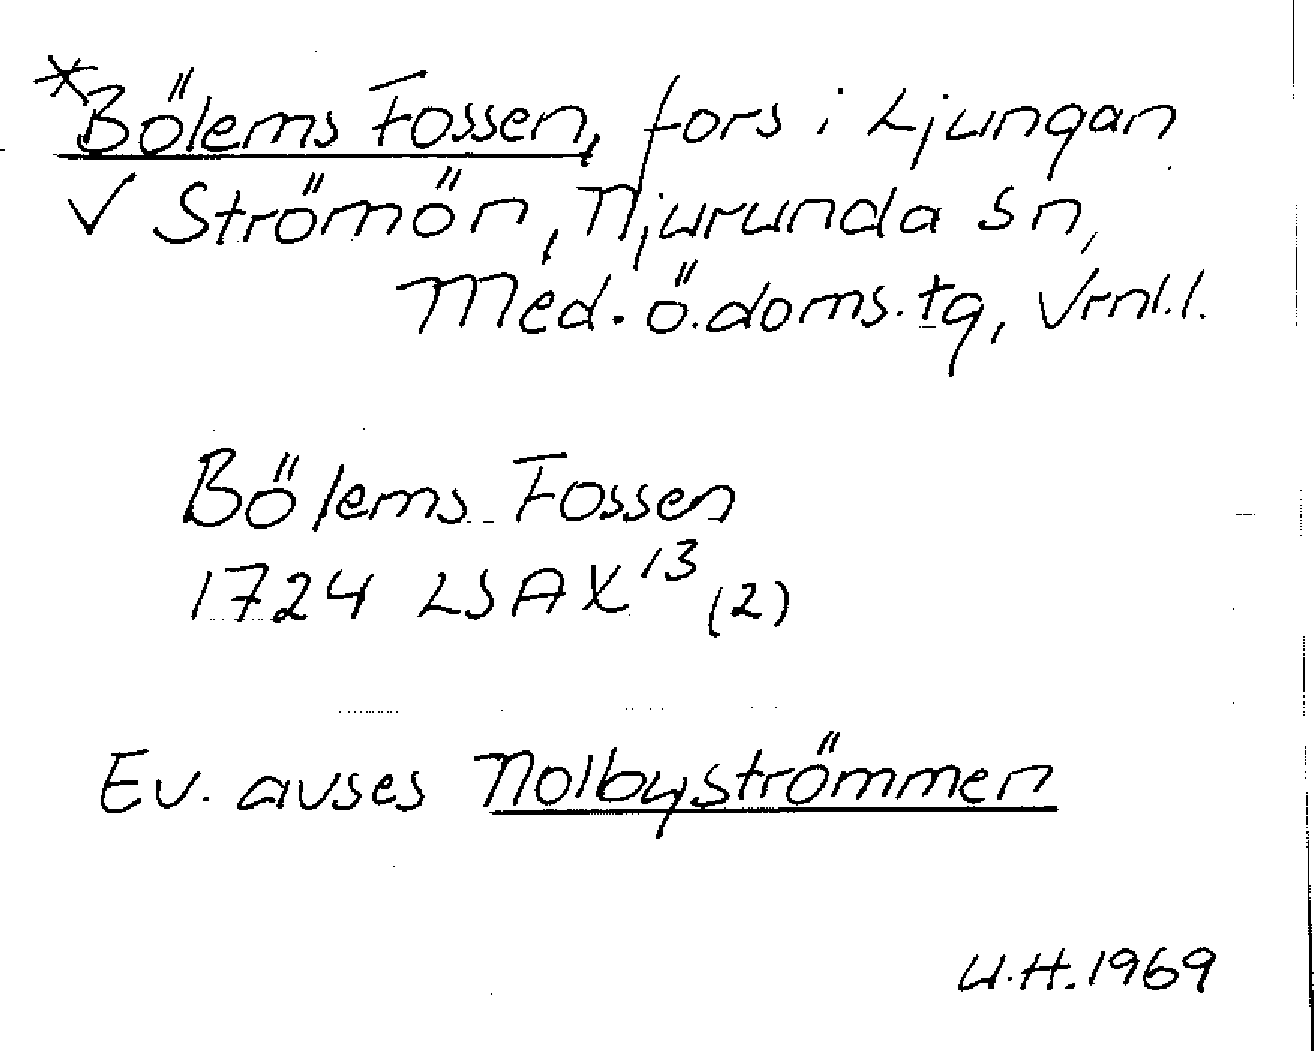 *Bölems Fossen, fors i Ljungan
V Strömön, Njurunda sn,
Med. ö. doms. tg, Vrnl. l.
Bölems Fossen
1724 LSA X¹³ (2)
Ev. avses Nolbyströmmen
U.H. 1969